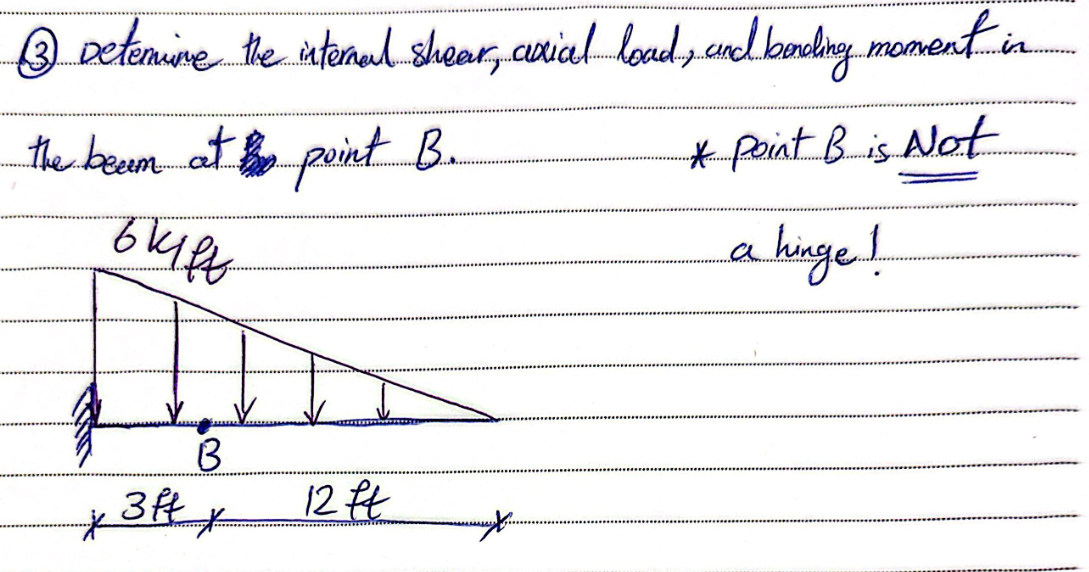 ③ Determine the internal shear, axial load, and bending moment in
the beam at point B.
* Point B is Not
a hinge!
6 k/ft
B
3 ft
12 ft